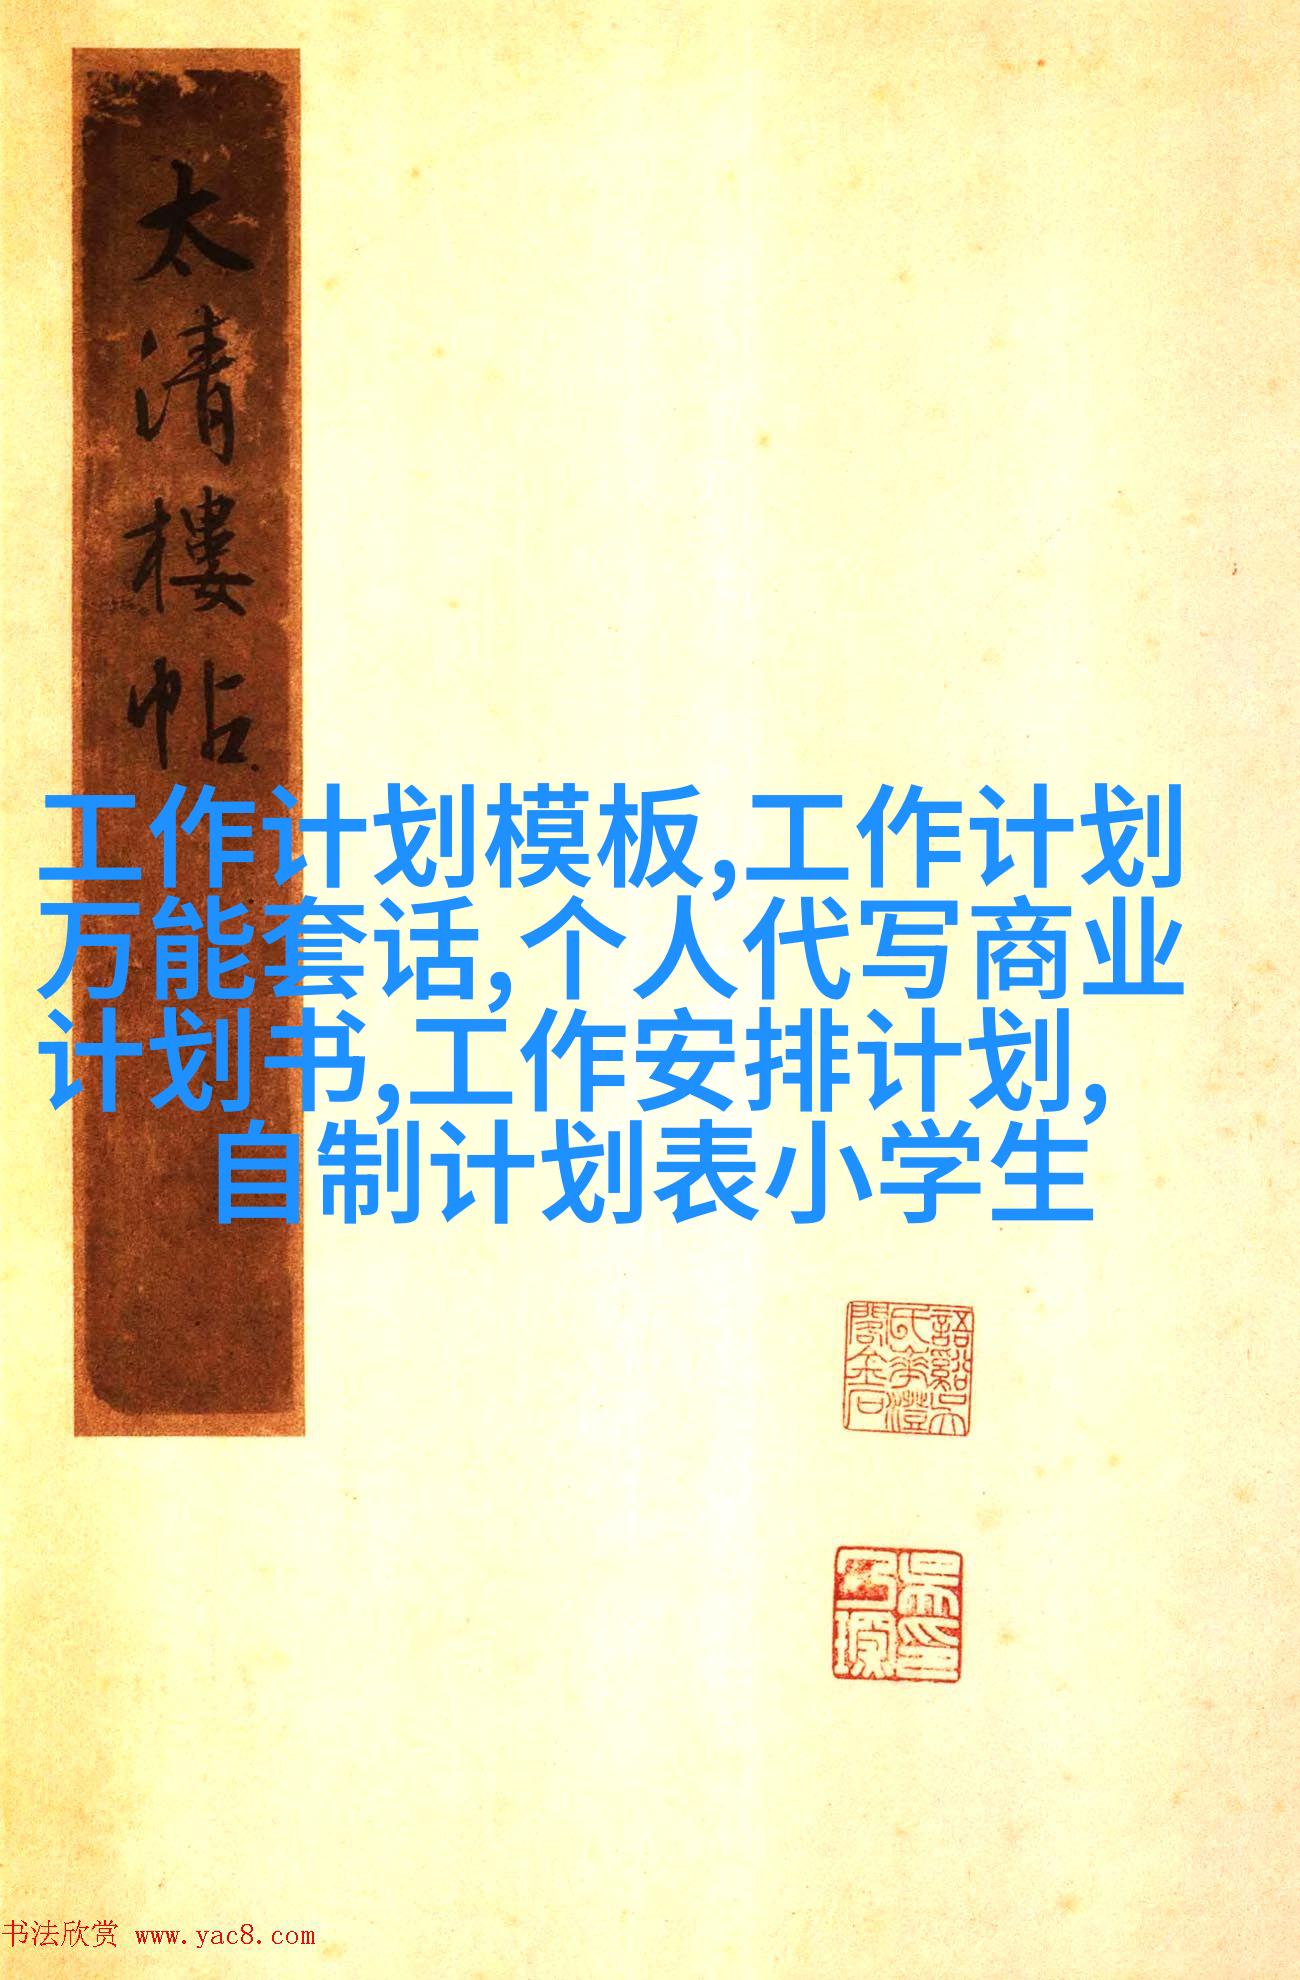 太清樓帖
工作计划模板,工作计划
万能套话,个人代写商业
计划书,工作安排计划,
自制计划表小学生
书法欣赏 www.yac8.com